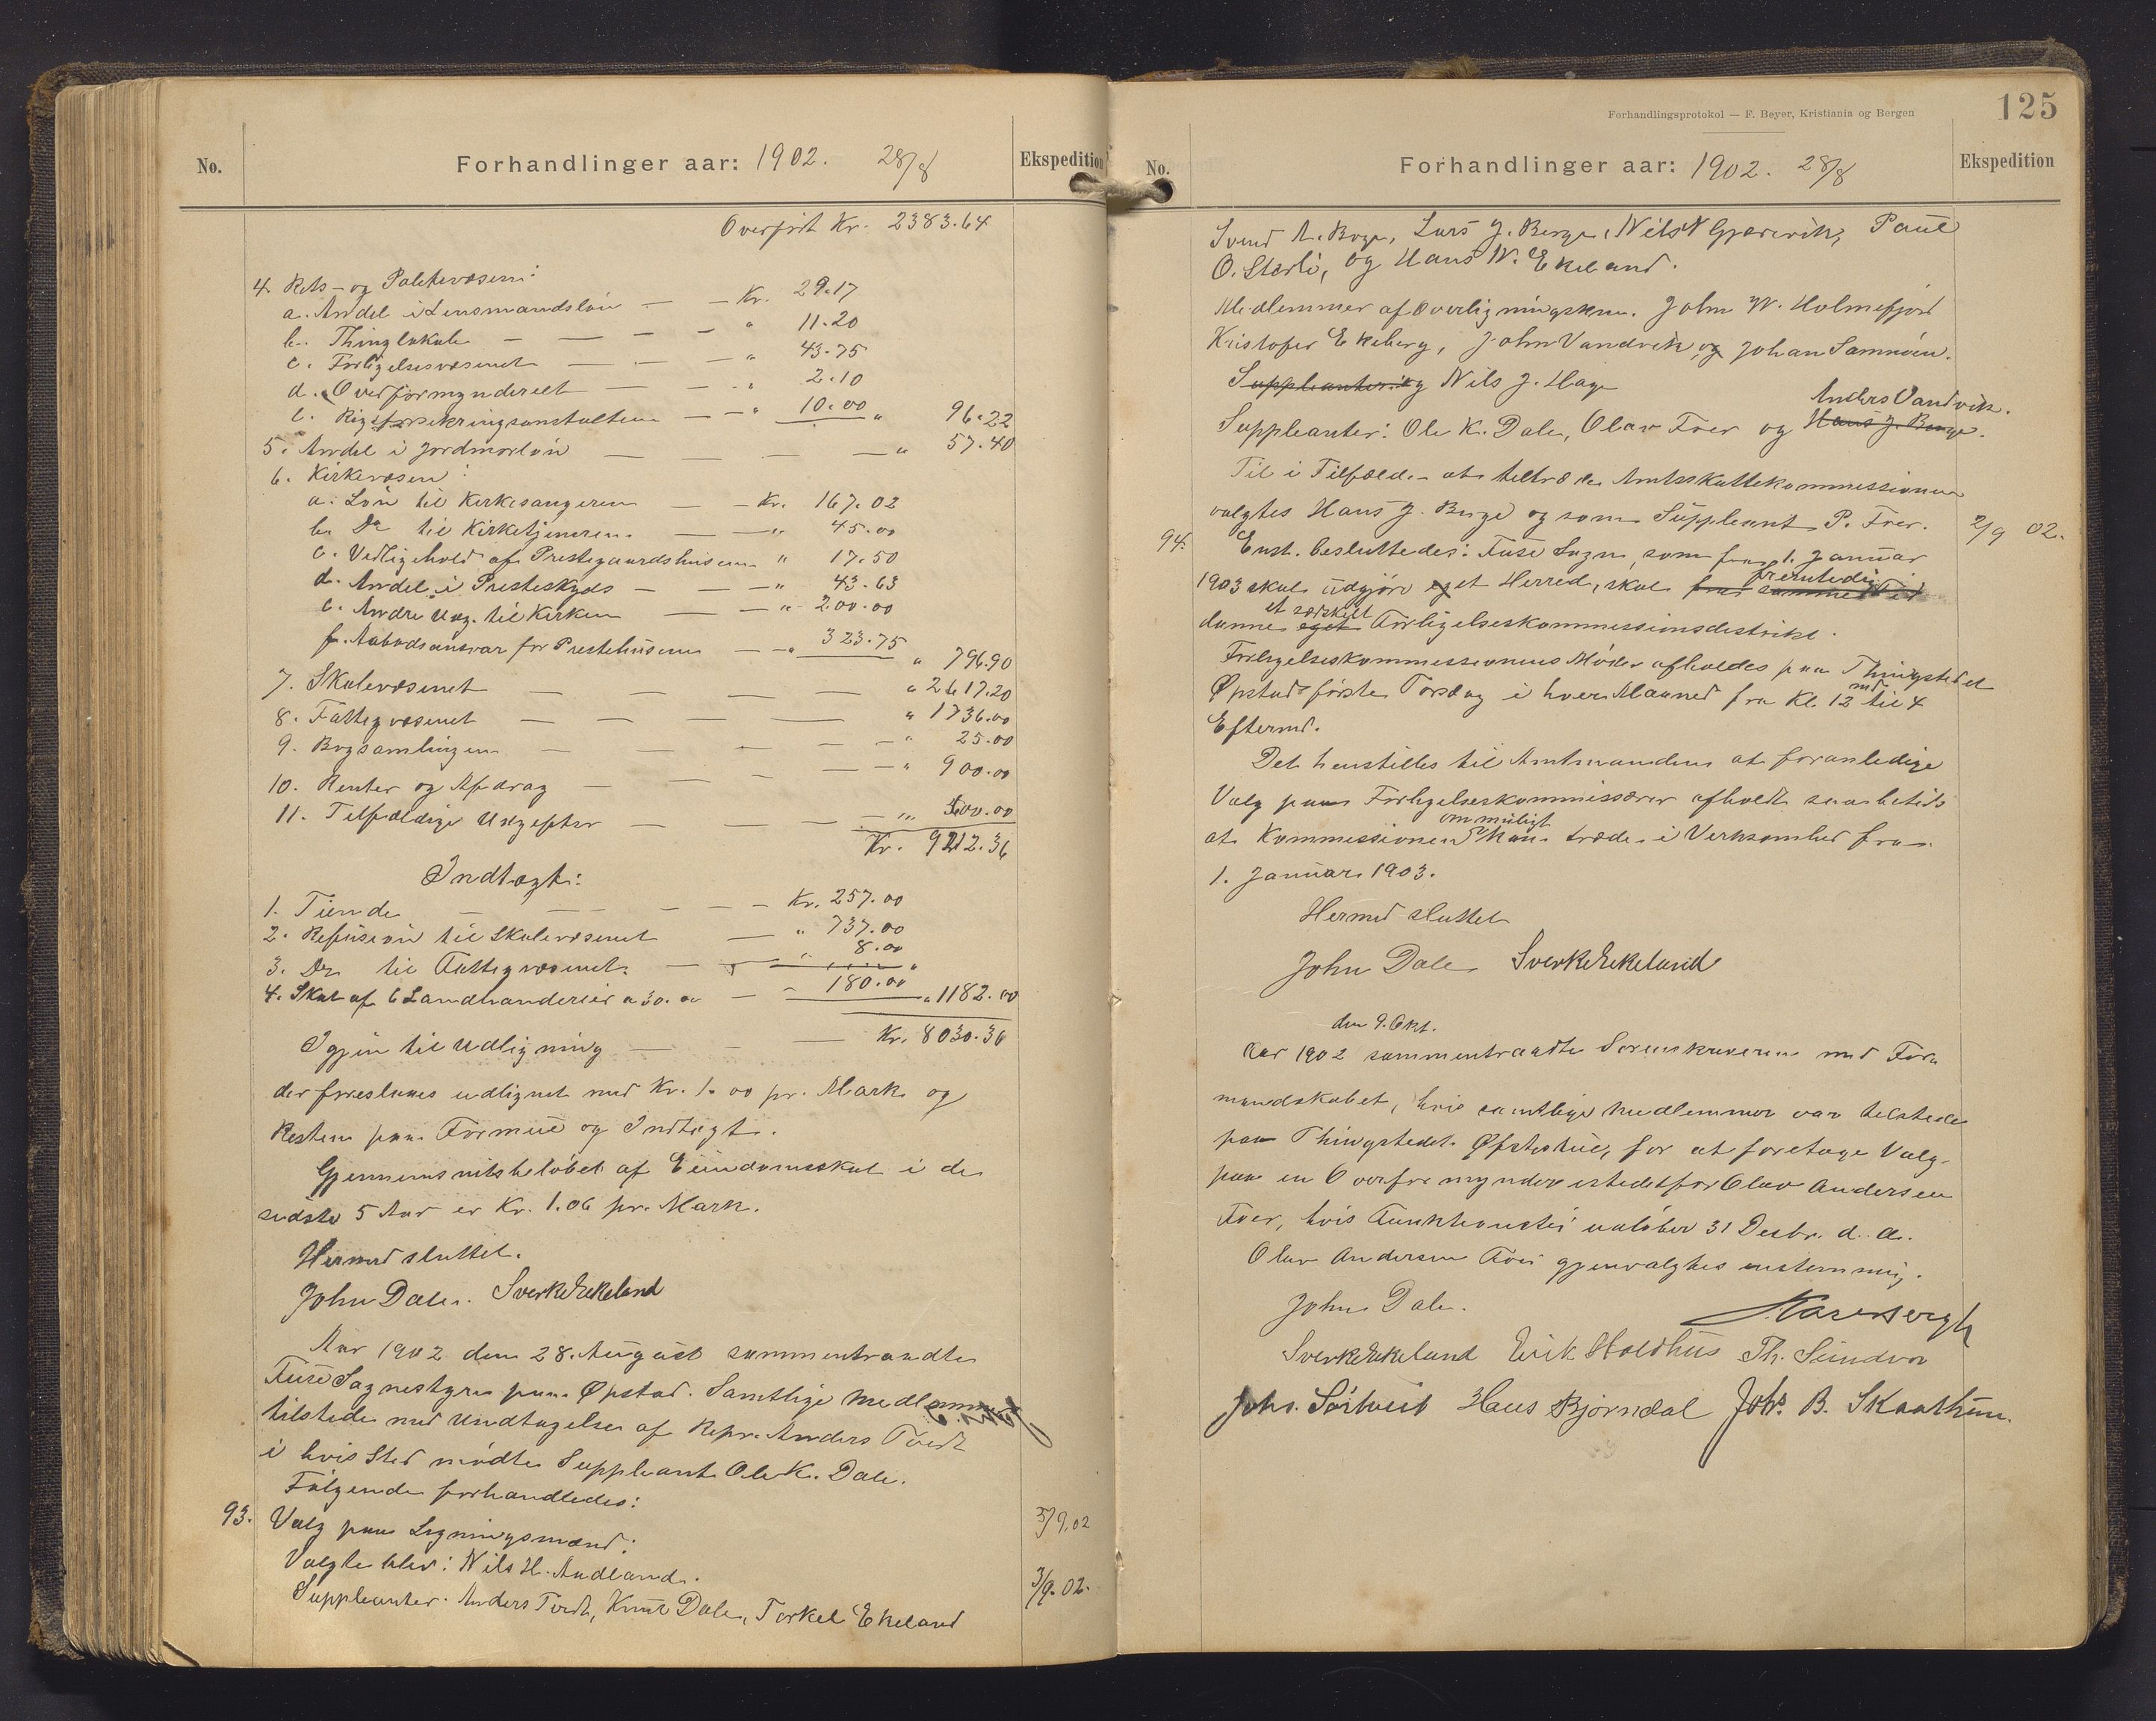 No.
Forhandlinger aar: 1902. 28/8
Ekspedition
Overført Kr. 2383.64
4. Rets- og Politivæsen:
a. Andel i Lensmandsløn — — Kr. 29.17
b. Thinglokale — — — — " 11.20
c. Forligelsesvæsenet — — — " 43.75
d. Overformynderiet — — — " 2.10
e. Rigsforsikringsanstalten — — " 10.00 " 96.22
5. Andel i Jordmorløn — — — — " 57.40
6. Kirkevæsen:
a. Løn til Kirkesangeren — — Kr. 167.02
b. Do til Kirketjeneren — — " 45.00
c. Vedligehold af Prestegaardshusene " 17.50
d. Andel i Presteskyds — — — " 43.63
e. Andre Udg. til Kirken — — " 200.00
f. Aabodsansvar for Prestehusene — — " 323.75
" 796.90
7. Skolevæsenet — — — — " 2617.20
8. Fattigvæsenet — — — — " 1736.00
9. Bogsamlingen — — — — — " 25.00
10. Renter og Afdrag — — — — — " 900.00
11. Tilfældige Udgifter — — — — " 600.00
Kr. 9212.36
Indtægt:
1. Tiende — — — — — Kr. 257.00
2. Refusion til Skolevæsenet — " 737.00
3. Do til Fattigvæsenet — " 8.00
4. Skat af 6 Landhanderier a 30.00 — " 180.00 " 1182.00
Igjen til Udligning — — — Kr. 8030.36
der foreslaaes udlignet med Kr. 1.00 pr. Mark og
Resten paa Formue og Indtægt.
Gjennemsnitsbeløbet af Eiendomsskat i de
sidste 5 Aar er Kr. 1.06 pr. Mark.
Hermed sluttet.
John Dale. Sverke Ekeland
Aar 1902 den 28. August sammentraadte
Fuse Sognestyre paa Øpstad. Samtlige Medlemmer
tilstede med Undtagelse af Repr. Anders Tveit
i hvis Sted mødte Suppleant Ole K. Dale.
Følgende forhandledes:
93. Valg paa Ligningsmænd: 5/9.02
Valgte blev: Nils H. Audland.
Suppleanter: Anders Tveit, Knut Dale, Torkel Ekeland 3/9.02.
Forhandlingsprotokol — F. Beyer, Kristiania og Bergen
125
No.
Forhandlinger aar: 1902. 28/8
Ekspedition
Svend A. Boge, Lars J. Berge, Nils N Gjærevik, Paul
O. Størli, og Hans N. Ekeland.
Medlemmer af Overligningskom. John W. Holmefjord
Kristofer Ekeberg, John Vandvik, og Johan Samnøen.
Suppleanter: og Nils J. Hage
Anders Vandvik.
Suppleanter: Ole K. Dale, Olav Foer og Hans J. Berge.
Til i Tilfælde at tiltræde Amtsskattekommissionen
valgtes Hans J. Berge og som Suppleant P. Foer. 2/9 02.
94. Enst. besluttedes: Fuse Sogn, som fra 1. Januar
1903 skal udgjøre eget Herred, skal fra samme Tid fremtedig
et særskilt
danne eget Forligelseskommissionsdistrikt.
Forligelseskommissionens Møder afholdes paa Thingstedet
Øpstad første Torsdag i hver Maaned fra Kl. 12 md til 4
Efterm.
Det henstilles til Amtmanden at foranledige
Valg paa Forligelseskommissærer afholdt saa betids
om muligt
at Kommissionen kan træde i Virksomhed fra
1. Januar 1903.
Hermed sluttet
John Dale Sverke Ekeland
den 9. Okt.
Aar 1902 sammentraadte Sorenskriveren med For-
mandskabet, hvis samtlige Medlemmer var tilstede
paa Thingstedet Øfstestue, for at foretage Valg
paa en Overformynder istedetfor Olav Andersen
Foer, hvis Funktionstid udløber 31 Desbr. d. a.
Olav Andersen Foer gjenvalgtes enstemmig.
John Dale.
Sverke Ekeland Eirik Holdhus Th. Sundvor
Johs. Sørtveit Hans Bjørndal Johs. B. Skaathun.